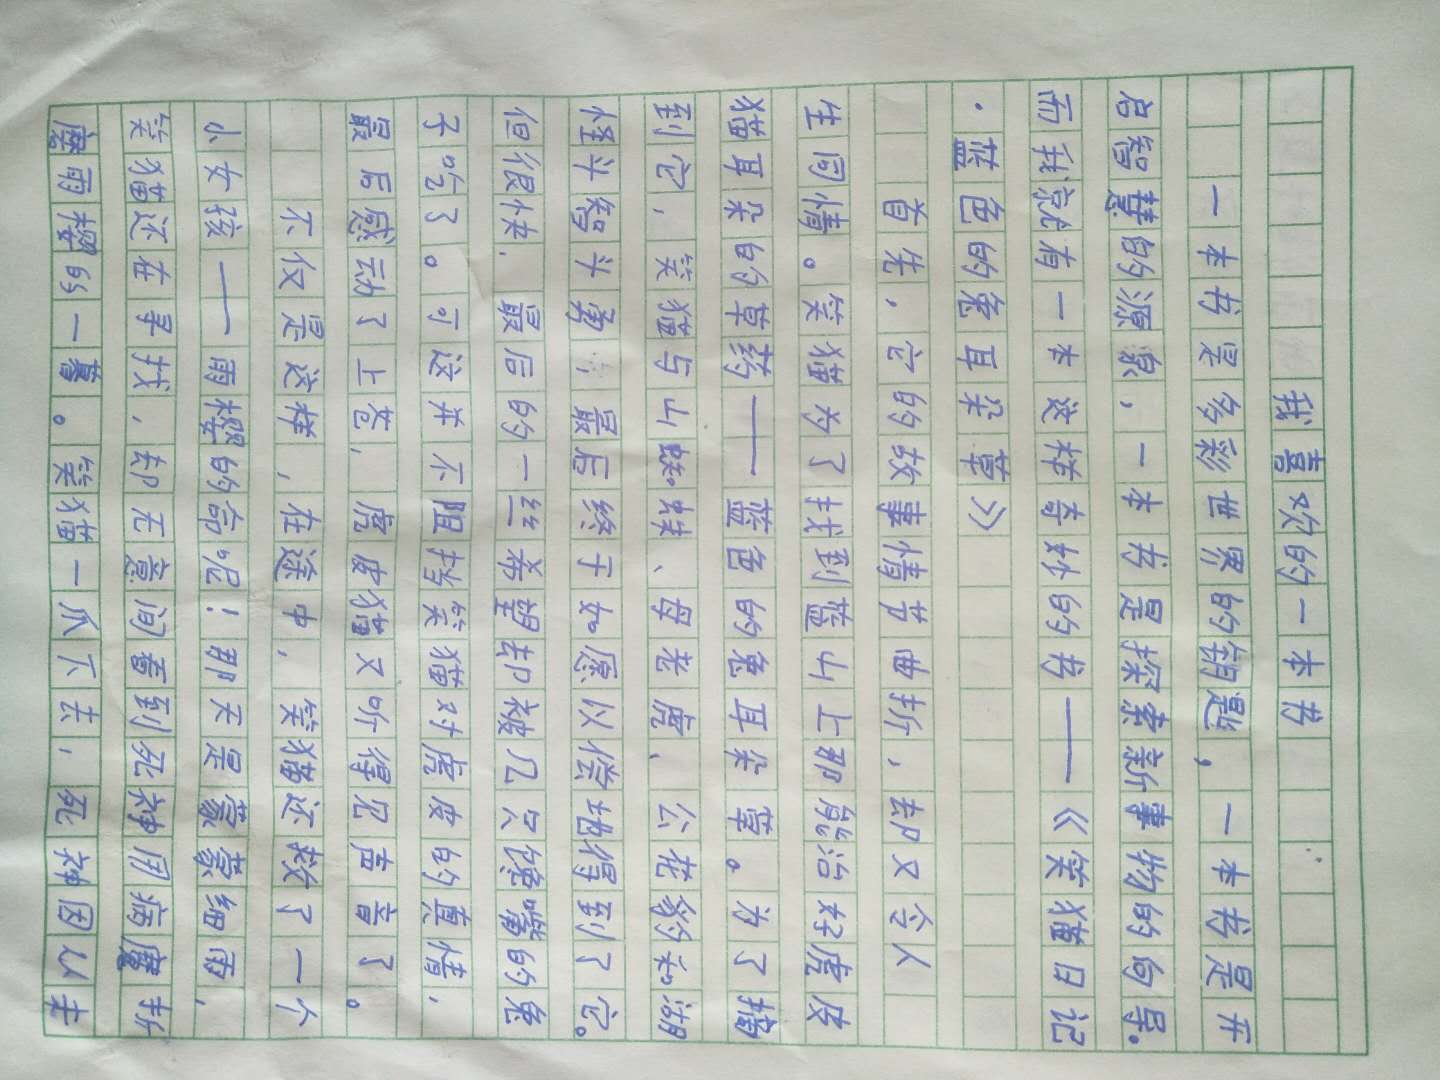 我喜欢的一本书
一本书是多彩世界的钥匙，一本书是开
启智慧的源泉，一本书是探索新事物的向导。
而我就有一本这样奇妙的书——《笑猫日记
·蓝色的兔耳朵草》
首先，它的故事情节曲折，却又令人
生同情。笑猫为了找到蓝山上那能治好虎皮
猫耳朵的草药——蓝色的兔耳朵草。为了摘
到它，笑猫与山蜈蚣、母老虎、公花豹和湖
怪斗智斗勇；最后终于如愿以偿地得到了它。
但很快，最后的一丝希望却被几只馋嘴的兔
子吃了。可这并不阻挡笑猫对虎皮的真情，
最后感动了上苍，虎皮猫又听得见声音了。
不仅是这样，在途中，笑猫还救了一个
小女孩——雨樱的命呢！那天是蒙蒙细雨，
笑猫还在寻找，却无意间看到死神用病魔折
磨雨樱的一幕。笑猫一爪下去，死神因以丰